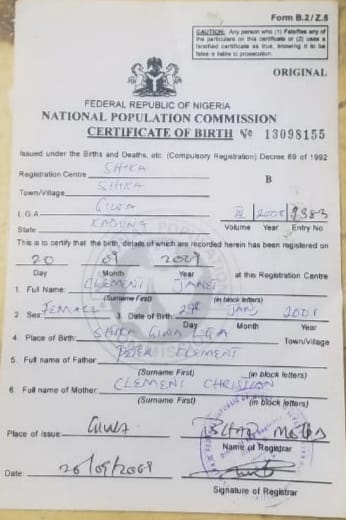 Form B.2/Z.5
CAUTION: Any person who (1) Falsifies any of
the particulars on this certificate or (2) uses a
falsified certificate as true, knowing it to be
false is liable to prosecution.
ORIGINAL
FEDERAL REPUBLIC OF NIGERIA
NATIONAL POPULATION COMMISSION
CERTIFICATE OF BIRTH No 13098155
Issued under the Births and Deaths, etc. (Compulsory Registration) Decree 69 of 1992
Registration Centre SHIKA
B
Town/Village SHIKA
L.G.A GIWA 2008 9383
State KADUNA Volume Year Entry No.
This is to certify that the birth, details of which are recorded herein has been registered on
20 09 2009
Day Month Year at this Registration Centre
1. Full Name: CLEMENT JANET
(Surname First) (in block letters)
2. Sex: FEMALE 3. Date of Birth: 29th JAN 2001
Day Month Year
4. Place of Birth: SHIKA GIWA LGA Town/Village
5. Full name of Father: PETER CLEMENT
(Surname First) (in block letters)
6. Full name of Mother: CLEMENT CHRISTIAN
(Surname First) (in block letters)
Place of issue: GIWA MOSES
Name of Registrar
Date: 20/09/2009
Signature of Registrar